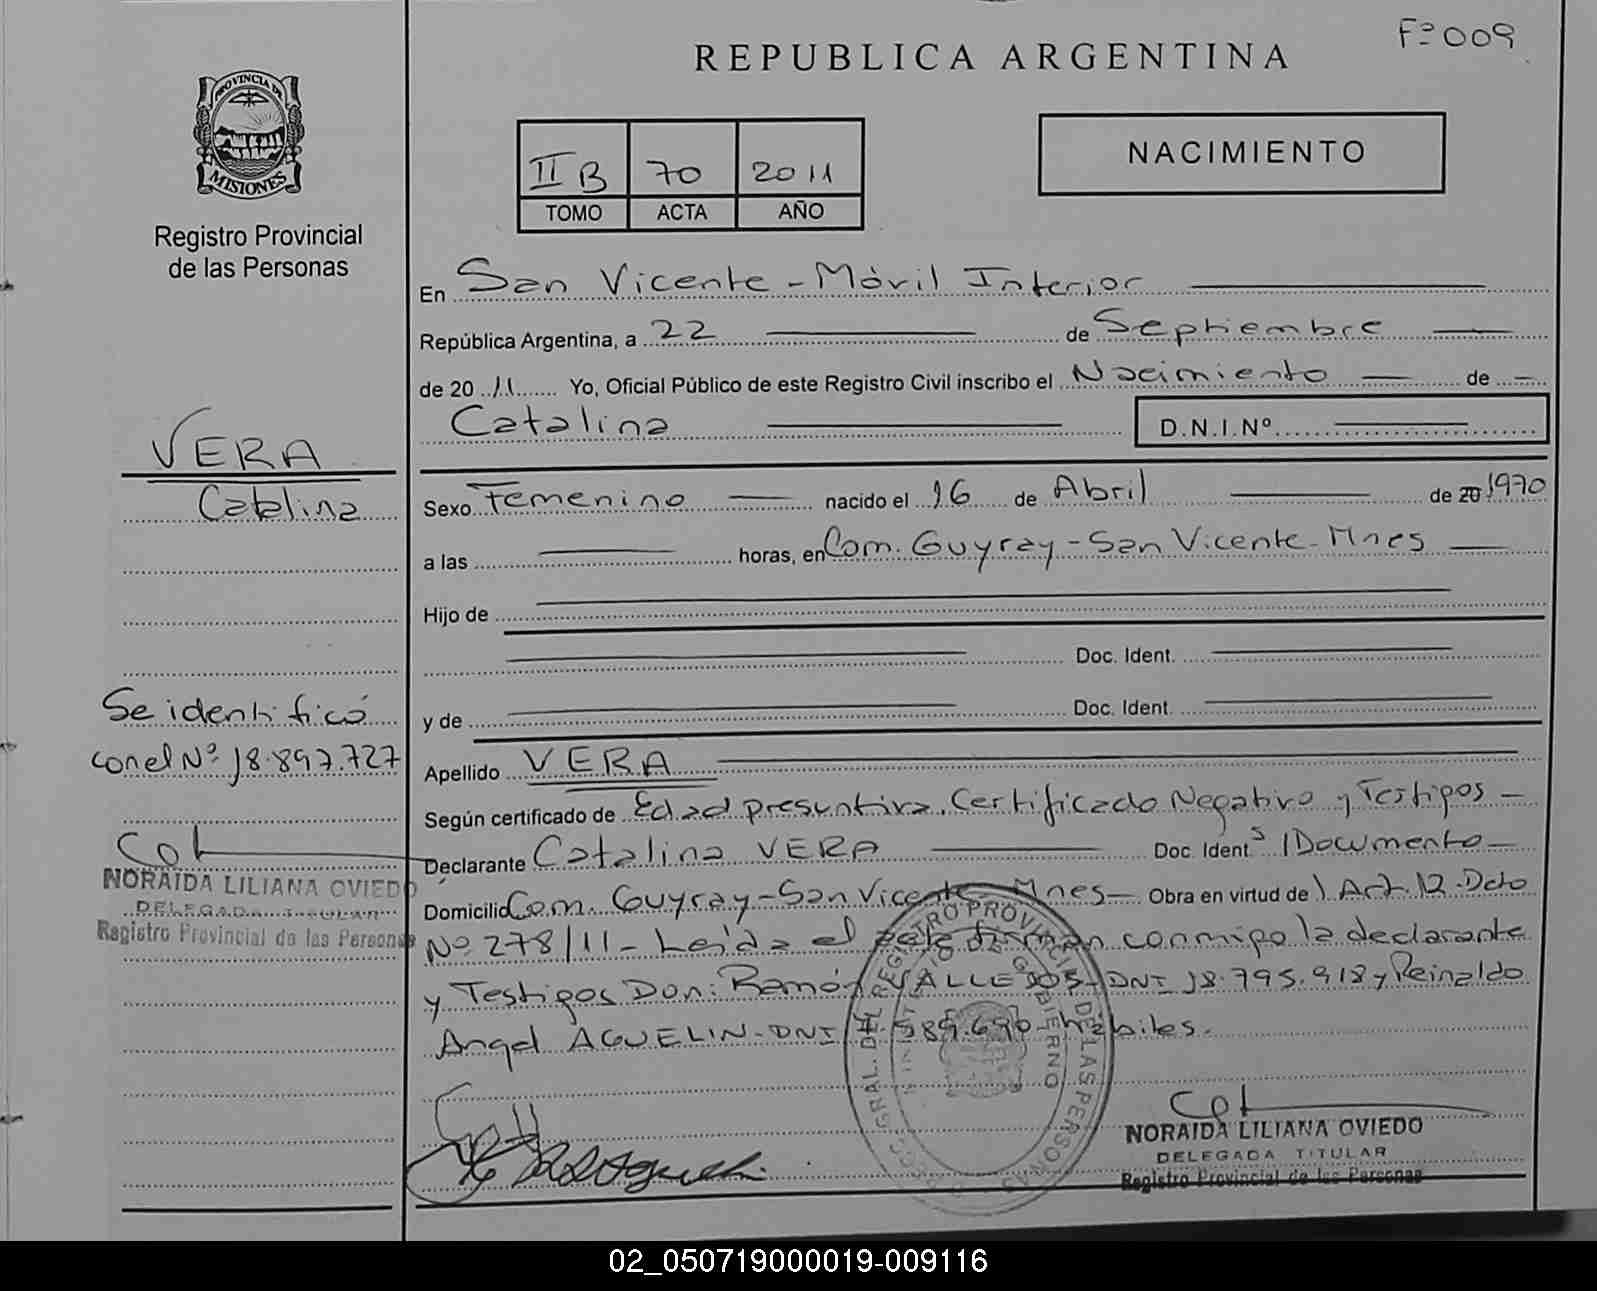 F=º 009
REPUBLICA ARGENTINA
PROVINCIA DE
MISIONES
Registro Provincial
de las Personas
II B 70 2011
TOMO ACTA AÑO
NACIMIENTO
En San Vicente - Móvil Interior
República Argentina, a 22 de Septiembre
de 20 11 Yo, Oficial Público de este Registro Civil inscribo el Nacimiento de
Catalina D.N.I.Nº
VERA
Catalina
Sexo Femenino nacido el 16 de Abril de 20 1970
a las horas, en Com. Guyray - San Vicente - Mnes
Hijo de
Doc. Ident.
y de Doc. Ident.
Se identificó
con el Nº 18.897.727
Apellido VERA
Según certificado de Edad presuntiva, Certificado Negativo y Testigos -
Declarante Catalina VERA Doc. Ident. S/Documento
Domicilio Com. Guyray - San Vicente Mnes - Obra en virtud de Art. 12 - Dcto
Nº 278/11 - Leída el firman conmigo la declarante
y Testigos Don: Ramón VALLEJOS - DNI 18.795.918 y Reinaldo
Angel AGUELIN - DNI hábiles.
NORAIDA LILIANA OVIEDO
DELEGADA TITULAR
Registro Provincial de las Personas
NORAIDA LILIANA OVIEDO
DELEGADA TITULAR
Registro Provincial de las Personas
02_050719000019-009116